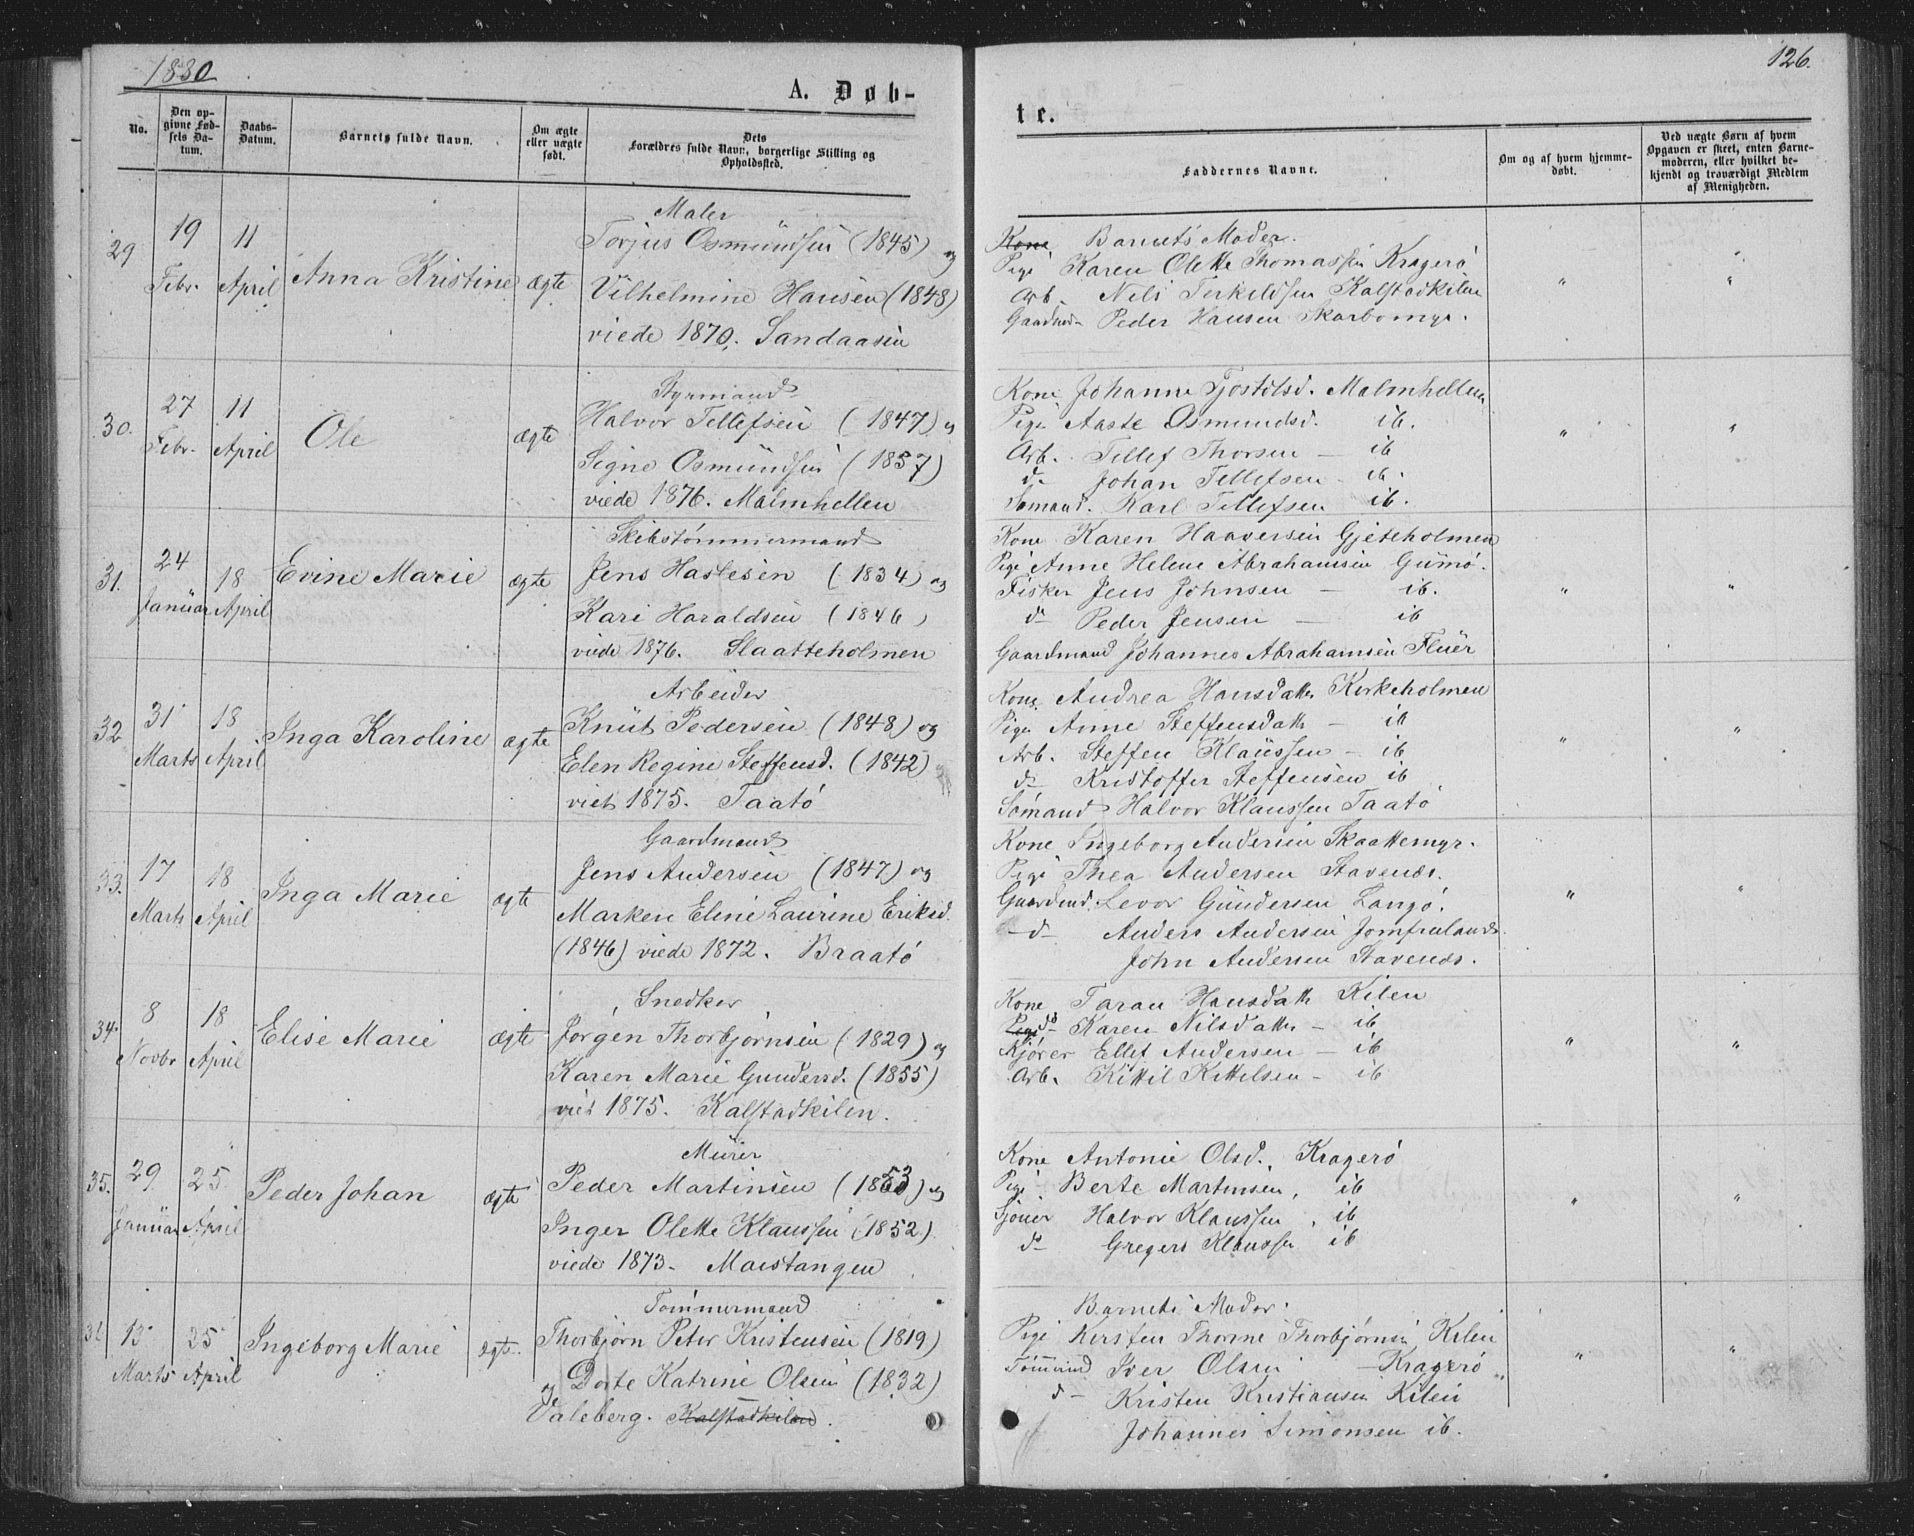 1880
A. Døb-
No.
Den opgivne Fødsels Datum.
Daabs-Datum.
Barnets fulde Navn.
Om ægte eller uægte født.
Dets Forældres fulde Navn, borgerlige Stilling og Opholdssted.
29
19 Febr.
11 April
Anna Kristine
ægte
Maler
Torjus Osmundsen (1845) og
Vilhelmine Hansen (1848)
viede 1870. Sandaasen
30.
27 Febr.
11 April
Ole
ægte
Styrmand
Halvor Tellefsen (1847) og
Signe Osmundsen (1857)
viede 1876. Malmhellen
31.
24 Januar
18 April
Evine Marie
ægte
Skibstømmermand
Jens Haslesen (1834) og
Kari Haraldsen (1846)
viede 1876. Slaatteholmen
32
31 Marts
18 April
Inga Karoline
ægte
Arbeider
Knut Pedersen (1848) og
Elen Regine Steffensd. (1842)
viet 1875. Taatø
33.
17 Marts
18 April
Inga Marie
ægte
Gaardmand
Jens Andersen (1847) og
Marken Eline Laurine Eriksd.
(1846) viede 1872. Braatø
34.
8 Novbr
18 April
Elise Marie
ægte
Snedker
Jørgen Thorbjørnsen (1829) og
Karen Marie Gundersd. (1855)
viet 1875. Kalstadkilen.
35.
29 Januar
25 April
Peder Johan
ægte
Murer
Peder Martinsen (1853) og
Inger Olette Klaussen (1852)
viede 1873. Maistangen
13 Marts
25 April
Ingeborg Marie
ægte
Tømmermand
Thorbjørn Peter Kristensen (1819)
og Dorte Katrine Olsen (1832)
Valeberg. Kalstadkilen.
126.
te.
Faddernes Navne.
Om og af hvem hjemmedøbt.
Ved uægte Børn af hvem Opgaven er skeet, enten Barnemoderen, eller hvilket bekjendt og troværdigt Medlem af Menigheden.
Kone Barnets Moder.
Pige Karen Olette Thomassen Kragerø
Arb. Nils Terkildsen Kalstadkilen
Gaardmd. Peder Hansen Skarbomyr.
Kone Johanne Tjostolsd. Malmhellen
Pige Aaste Osmundsd. ib.
Arb. Tellef Thorsen — ib
do Johan Tellefsen — ib.
Sømand. Karl Tellefsen ib.
Kone Karen Haaversen Gjeteholmen
Pige Anne Helene Abrahamsen Gumø.
Fisker Jens Johnsen — ib.
do Peder Jensen — ib
Gaardmand Johannes Abrahamsen Fluer
Kone Andrea Hansdatter Kirkeholmen
Pige Anne Steffensdatter — ib
Arb. Steffen Klaussen — ib
do Kristoffer Steffensen ib
Sømand Halvor Klaussen Taatø
Kone Ingeborg Andersen Skaattemyr.
Pige Thea Andersen Stavenæs.
Gaardmd. Levor Gundersen Langø.
do Anders Andersen Jomfruland.
John Andersen Stavenæs.
Kone Taran Hansdatter Kilen
Pige do Karen Nilsdatter — ib
Kjører Ellef Andersen — ib
Arb. Kittil Kittelsen — ib
Kone Antonie Olsd. Kragerø
Pige Berte Martinsen, ib
Sjouer Halvor Klaussen, ib
do Gregers Klaussen ib
Barnets Moder.
Pige Kirsten Thorine Thorbjørnsen Kilen
Tømmrmd Iver Olsen — Kragerø
do Kristen Kristiansen Kilen
Johannes Simonsen ib.